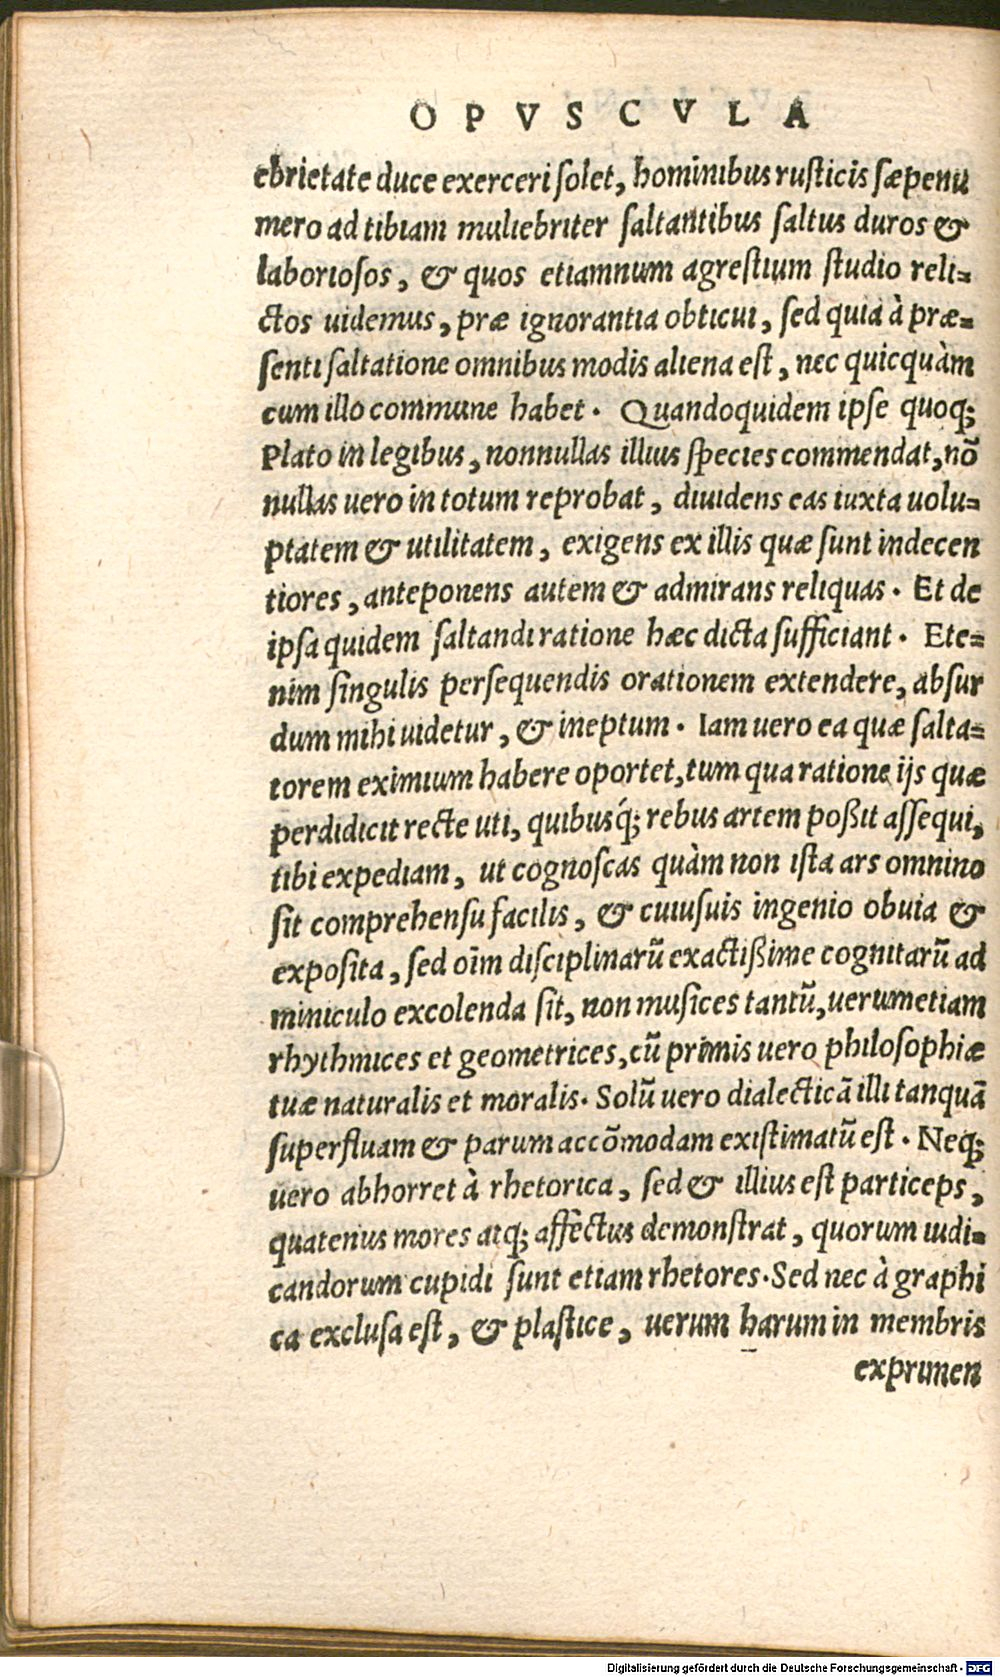 OPVSCVLA
ebrietate duce exerceri ſolet, hominibus ruſticis ſæpenu
mero ad tibiam muliebriter ſaltantibus ſaltus duros &
laborioſos, & quos etiamnum agreſtium ſtudio reli=
ctos uidemus, præ ignorantia obticui, ſed quia à præ=
ſenti ſaltatione omnibus modis aliena eſt, nec quicquàm
cum illo commune habet. Quandoquidem ipſe quoq;
Plato in legibus, nonnullas illius ſpecies commendat, nõ
nullas uero in totum reprobat, diuidens eas iuxta uolu=
ptatem & utilitatem, exigens ex illis quæ ſunt indecen
tiores, anteponens autem & admirans reliquas. Et de
ipſa quidem ſaltandi ratione hæc dicta ſufficiant. Ete=
nim ſingulis perſequendis orationem extendere, abſur
dum mihi uidetur, & ineptum. Iam uero ea quæ ſalta=
torem eximium habere oportet, tum qua ratione ijs quæ
perdidicit recte uti, quibusq́; rebus artem poßit aſſequi,
tibi expediam, ut cognoſcas quàm non iſta ars omnino
ſit comprehenſu facilis, & cuiuſuis ingenio obuia &
expoſita, ſed oĩm diſciplinarũ exactißime cognitarũ ad
miniculo excolenda ſit, non muſices tantũ, uerumetiam
rhythmices et geometrices, cũ primis uero philoſophiæ
tuæ naturalis et moralis. Solũ uero dialecticã illi tanquã
ſuperfluam & parum accõmodam exiſtimatũ eſt. Neq;
uero abhorret à rhetorica, ſed & illius eſt particeps,
quatenus mores atq; affectus demonſtrat, quorum iudi=
candorum cupidi ſunt etiam rhetores. Sed nec à graphi
ca excluſa eſt, & plaſtice, uerum harum in membris
exprimen
Digitalisierung gefördert durch die Deutsche Forschungsgemeinschaft - DFG